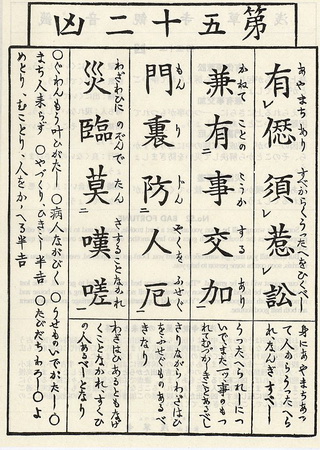 第五十二凶
あやまちあり すべからくうつたへをひくべし
有僁須惹訟
身にあやまちあつ
て人からうつたへら
れなんぎすべし
かねて ことの こうか する あり
兼有事交加
うつたへられしにつ
いてまた一ッ事のもつ
れてむづかしきことあるべし
もん り 人 やくを ふせぐ
門裏防人厄
さりながらわざはひ
をふせぐものあるべ
きなり
わざわひに のぞんで たん さすることなかれ
災臨莫嘆嗟
わざはひあるともなげ
くことなかれすくひ
の人あるべしとなり
○ぐわんもう叶ひがたし ○病人ながびく ○うせものいでがたし ○
まち人来らず ○やづくり、ひきこし半吉 ○たびだちわろし ○よ
めとり、むことり、人をかゝへる半吉